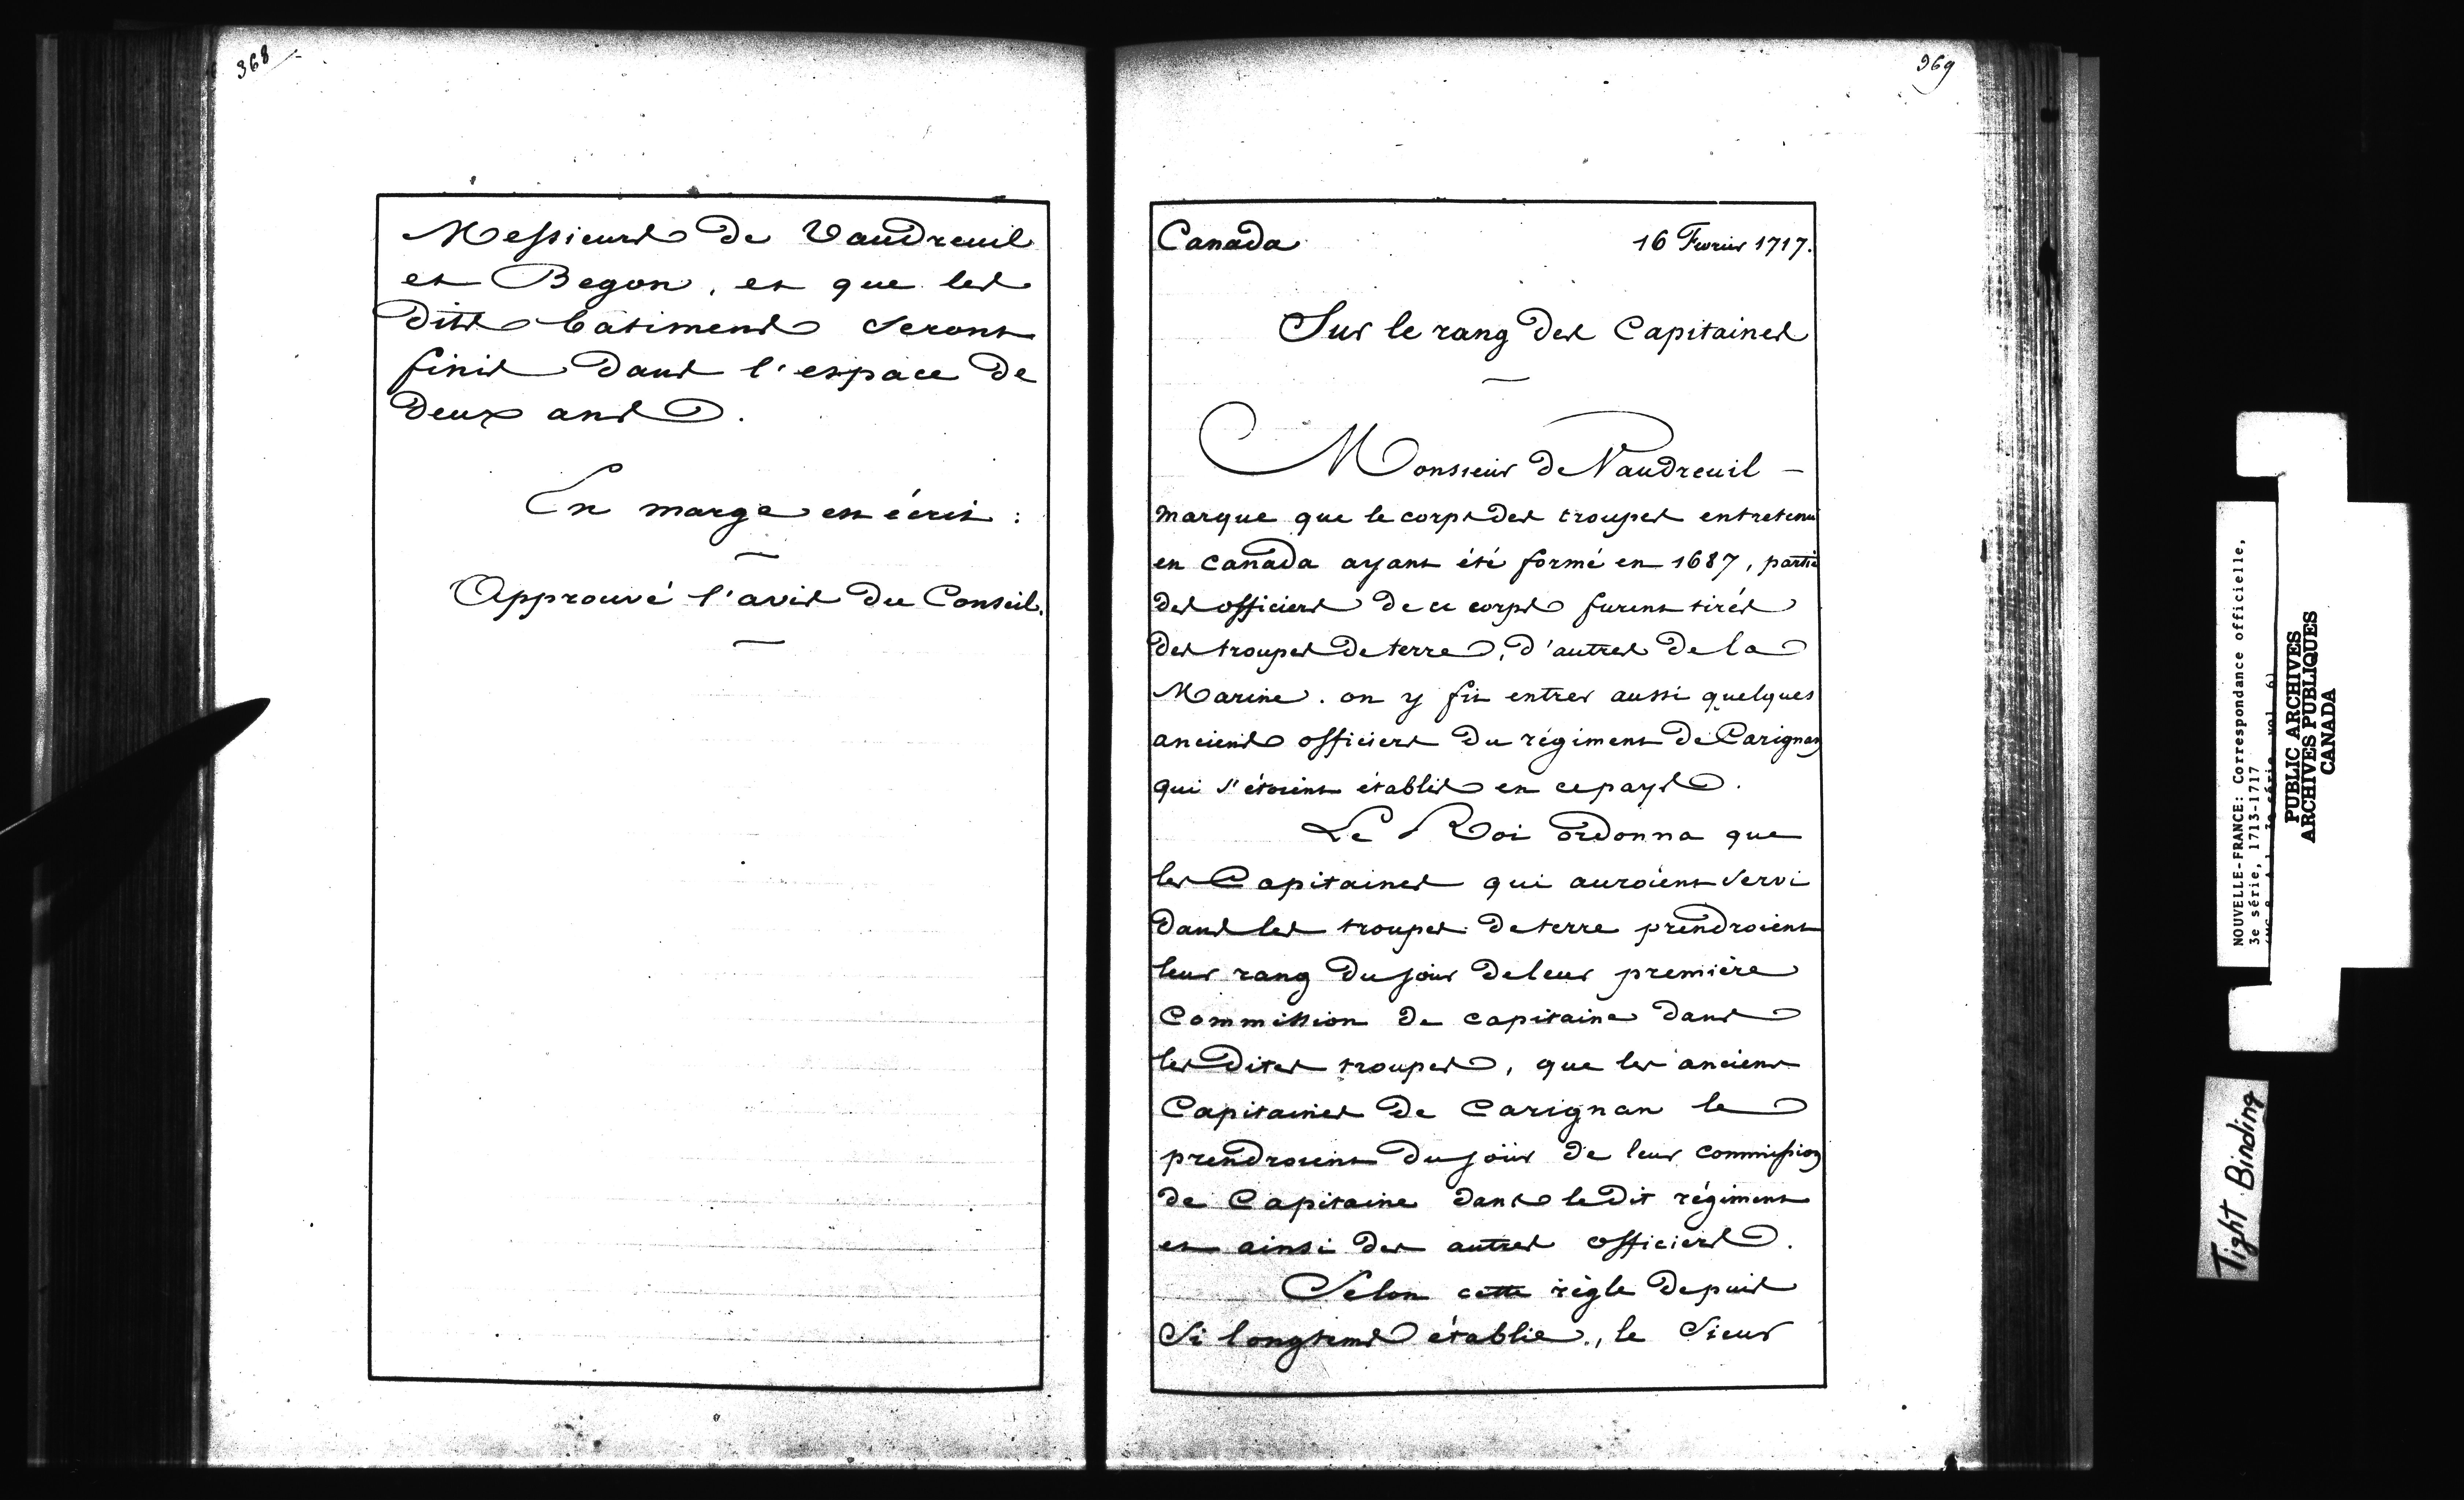 368
Messieurs de Vaudreuil
et Begon, et que les
dits bâtiments seront
finis dans l'espace de
deux ans.
En marge est écrit :
Approuvé l'avis du Conseil.
369
Canada 16 Fevrier 1717.
Sur le rang des Capitaines
Monsieur de Vaudreuil
marque que le corps des troupes entretenu
en Canada ayant été formé en 1687, partie
des officiers de ce corps furent tirés
des troupes de terre, d'autres de la
Marine. on y fit entrer aussi quelques
anciens officiers du régiment de Carignan
qui s'étoient établis en ce pays.
Le Roi ordonna que
les Capitaines qui auroient servi
dans les troupes de terre prendroient
leur rang du jour de leur première
Commission de capitaine dans
les dites troupes, que les anciens
Capitaines de Carignan le
prendroient du jour de leur commission
de Capitaine dans le dit régiment
et ainsi des autres officiers.
Selon cette règle depuis
si longtems établie, le Sieur
NOUVELLE-FRANCE: Correspondance officielle,
3e série, 1713-1717
PUBLIC ARCHIVES
ARCHIVES PUBLIQUES
CANADA
Tight Binding